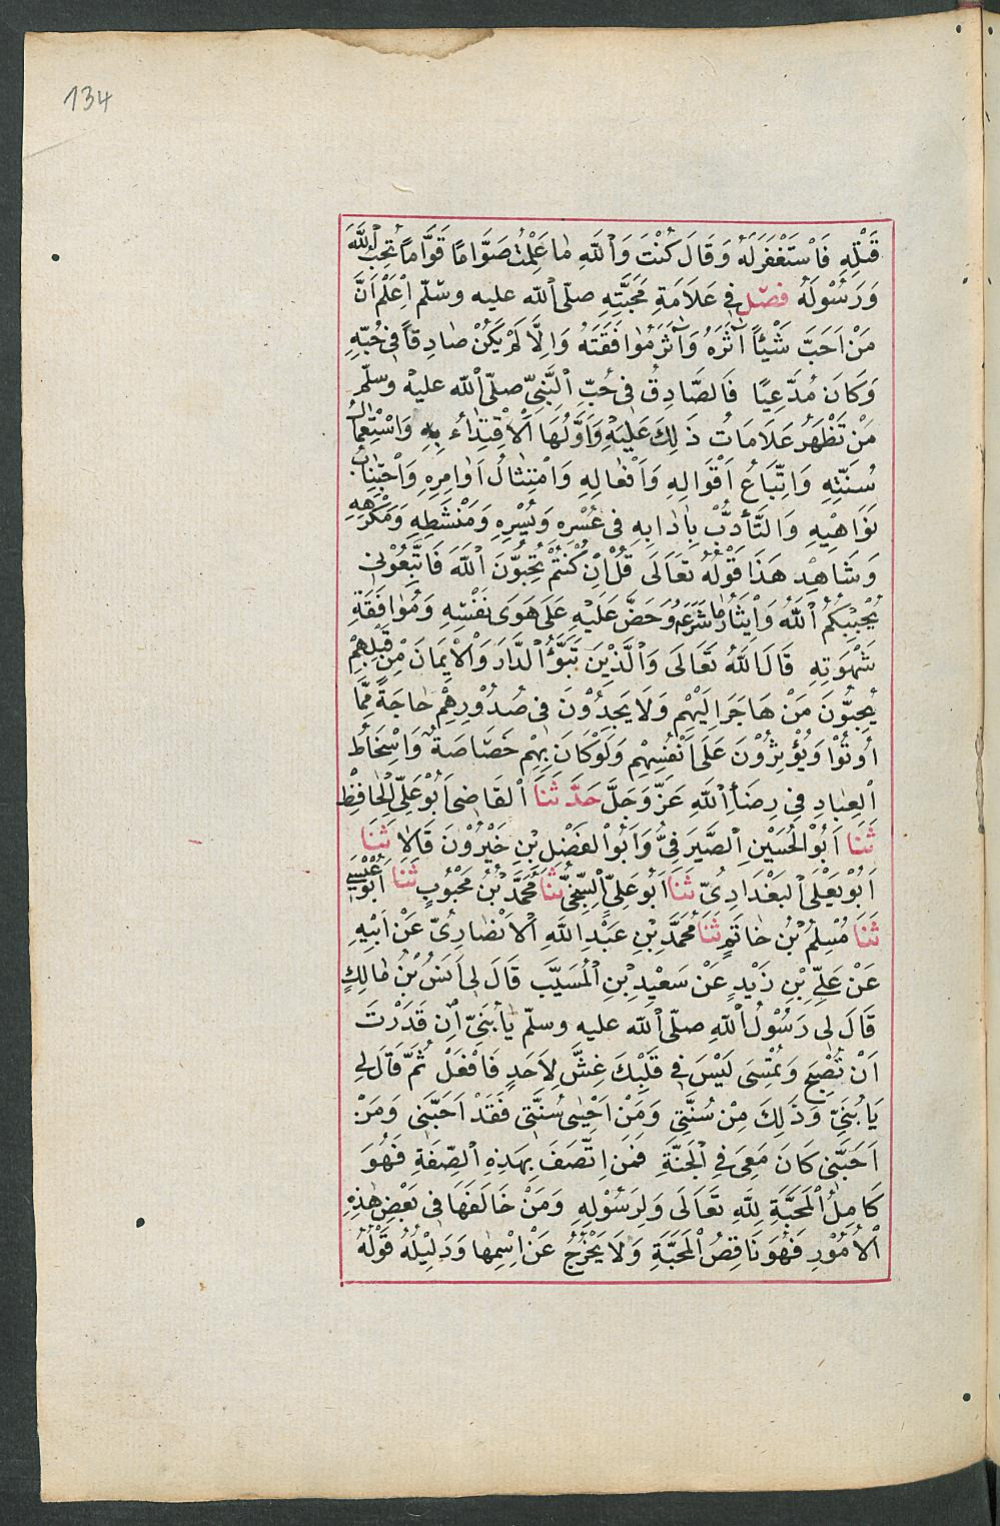 134
قَتْلِهِ فَاسْتَغْفَرَ لَهُ وَقَالَ كُنْتَ وَاللّٰهِ مَا عَلِمْتُ صَوَّامًا قَوَّامًا تُحِبُّ اللّٰهَ
وَرَسُولَهُ فصل فِي عَلَامَةِ مَحَبَّتِهِ صلّى اللّٰه عليه وسلّم اِعْلَمْ اَنَّ
مَنْ اَحَبَّ شَيْئًا آثَرَهُ وَآثَرَ مُوَافَقَتَهُ وَاِلَّا لَمْ يَكُنْ صَادِقًا فِي حُبِّهِ
وَكَانَ مُدَّعِيًا فَالصَّادِقُ فِي حُبِّ النَّبِيِّ صلّى اللّٰه عليه وسلّم
مَنْ تَظْهَرُ عَلَامَاتُ ذَلِكَ عَلَيْهِ وَاَوَّلُهَا الْاِقْتِدَاءُ بِهِ وَاسْتِعْمَالُ
سُنَّتِهِ وَاتِّبَاعُ اَقْوَالِهِ وَاَفْعَالِهِ وَامْتِثَالُ اَوَامِرِهِ وَاجْتِنَابُ
نَوَاهِيهِ وَالتَّأَدُّبُ بِاٰدَابِهِ فِي عُسْرِهِ وَيُسْرِهِ وَمَنْشَطِهِ وَمَكْرَهِهِ
وَشَاهِدُ هَذَا قَوْلُهُ تَعَالَى قُلْ اِنْ كُنْتُمْ تُحِبُّونَ اللّٰهَ فَاتَّبِعُوْنِي
يُحْبِبْكُمُ اللّٰهُ وَاِيثَارُ مَا شَرَعَهُ وَحَضَّ عَلَيْهِ عَلَى هَوَى نَفْسِهِ وَمُوَافَقَةِ
شَهْوَتِهِ قَالَ اللّٰهُ تَعَالَى وَالَّذِيْنَ تَبَوَّؤُا الدَّارَ وَالْاِيْمَانَ مِنْ قَبْلِهِمْ
يُحِبُّونَ مَنْ هَاجَرَ اِلَيْهِمْ وَلَا يَجِدُوْنَ فِي صُدُوْرِهِمْ حَاجَةً مِمَّا
اُوتُوْا وَيُؤْثِرُوْنَ عَلَى اَنْفُسِهِمْ وَلَوْ كَانَ بِهِمْ خَصَاصَةٌ وَاِسْخَاطُ
الْعِبَادِ فِي رِضَاءِ اللّٰهِ عَزَّ وَجَلَّ حَدَّثَنَا الْقَاضِي اَبُوْ عَلِيٍّ الْحَافِظُ
ثَنَا اَبُوْ الْحُسَيْنِ الصَّيْرَفِيُّ وَاَبُوْ الْفَضْلِ بْنِ خَيْرُوْنَ قَالَا ثَنَا
اَبُوْ يَعْلَى الْبَغْدَادِيّ ثَنَا اَبُوْ عَلِيٍّ السِّنْجِيُّ ثَنَا مُحَمَّدُ بْنُ مَحْبُوْبٍ ثَنَا اَبُوْ عِيْسَى
ثَنَا مُسْلِمُ بْنُ حَاتِمٍ ثَنَا مُحَمَّدِ بْنِ عَبْدِ اللّٰهِ الْاَنْصَارِيّ عَنْ اَبِيْهِ
عَنْ عَلِيِّ بْنِ زَيْدٍ عَنْ سَعِيْدِ بْنِ الْمُسَيَّبِ قَالَ لِي اَنَسُ بْنُ مَالِكٍ
قَالَ لِي رَسُوْلُ اللّٰهِ صلّى اللّٰه عليه وسلّم يَا بُنَيَّ اِنْ قَدَرْتَ
اَنْ تُصْبِحَ وَتُمْسِيَ لَيْسَ فِي قَلْبِكَ غِشٌّ لِاَحَدٍ فَافْعَلْ ثُمَّ قَالَ لِي
يَا بُنَيَّ وَذَلِكَ مِنْ سُنَّتِي وَمَنْ اَحْيَى سُنَّتِي فَقَدْ اَحَبَّنِي وَمَنْ
اَحَبَّنِي كَانَ مَعِيَ فِي الْجَنَّةِ فَمَنِ اتَّصَفَ بِهَذِهِ الصِّفَةِ فَهُوَ
كَامِلُ الْمَحَبَّةِ لِلّٰهِ تَعَالَى وَلِرَسُوْلِهِ وَمَنْ خَالَفَهَا فِي بَعْضِ هٰذِهِ
الْاُمُوْرِ فَهُوَ نَاقِصُ الْمَحَبَّةِ وَلَا يَخْرُجُ عَنْ اِسْمِهَا وَدَلِيْلُهُ قَوْلُهُ